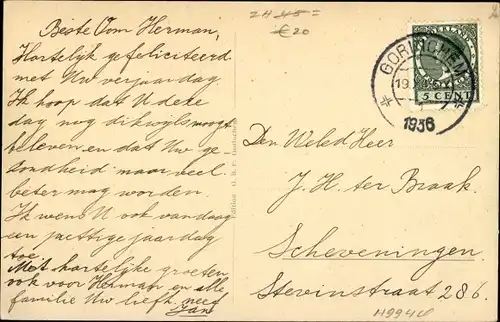 Beste Oom Herman,
Hartelijk gefeliciteerd
met Uw verjaardag
Ik hoop dat U deze
dag nog dikwijls moogt
beleven en dat Uw ge
zondheid maar veel
beter mag worden.
Ik wens U ook vandaag
een prettige jaardag
toe.
Met hartelijke groeten
ook voor Herman en alle
familie Uw liefh. neef
Jan
24 45 =
€ 20
GORINCHEM
19
1936
5 CENT
Den Weled Heer
J. H. ter Braak.
Scheveningen.
Stevinstraat 286.